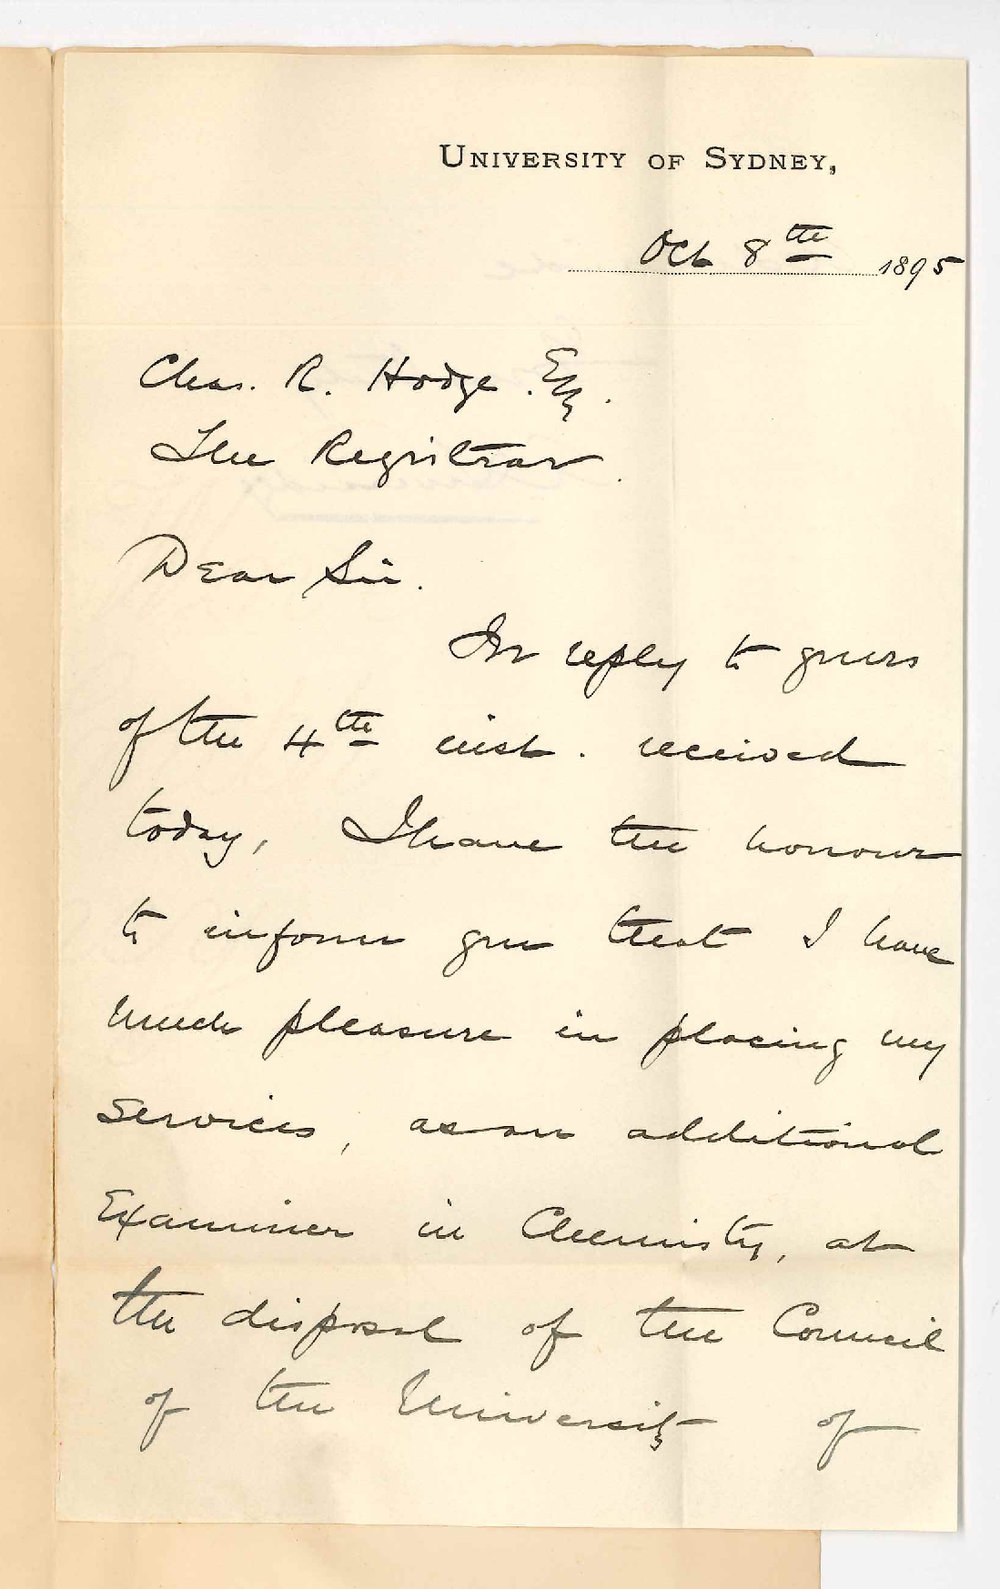 UNIVERSITY OF SYDNEY,
Oct 8th 1895
Chas. R. Hodge. Esq.
The Registrar.
Dear Sir.
In reply to yours
of the 4th inst. received
today, I have the honour
to inform you that I have
much pleasure in placing my
services, as an additional
Examiner in Chemistry, at
the disposal of the Council
of the University of